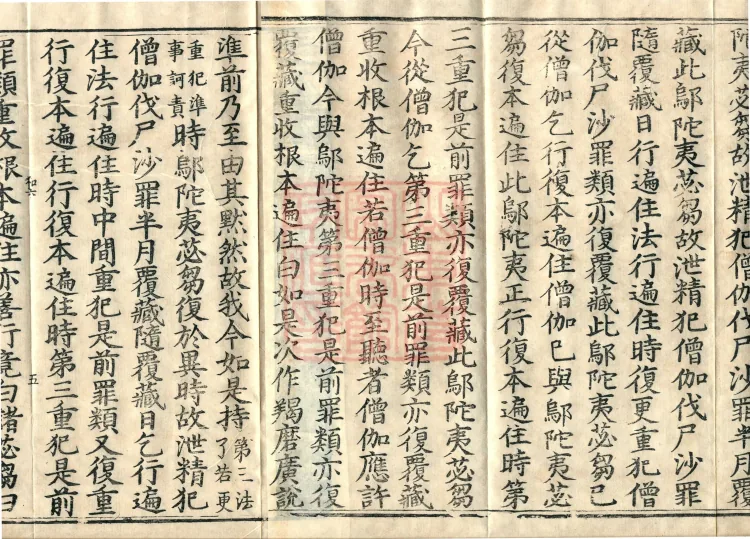 陀夷苾芻故泄精犯僧伽伐尸沙罪半月覆
藏此鄔陀夷苾芻故泄精犯僧伽伐尸沙罪
隨覆藏日行遍住法行遍住時復更重犯僧
伽伐尸沙罪類亦復覆藏此鄔陀夷苾芻已
從僧伽乞行復本遍住僧伽已與鄔陀夷苾
芻復本遍住此鄔陀夷正行復本遍住時第
三重犯是前罪類亦復覆藏此鄔陀夷苾芻
今從僧伽乞第三重犯是前罪類亦復覆藏
重收根本遍住若僧伽時至聽者僧伽應許
僧伽今與鄔陀夷第三重犯是前罪類亦復
覆藏重收根本遍住白如是次作羯磨廣說
準前乃至由其默然故我今如是持第三法了若更
重犯準事訶責時鄔陀夷苾芻復於異時故泄精犯
僧伽伐尸沙罪半月覆藏隨覆藏日乞行遍
住法行遍住時中間重犯是前罪類又復重
行復本遍住行復本遍住時第三重犯是前
和六 五
罪類重收根本遍住亦善行竟白諸苾芻曰